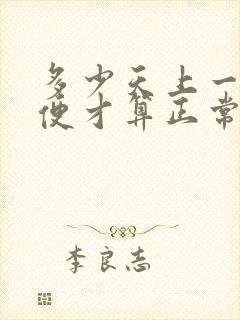 多少天上一
便才算正常
李良志